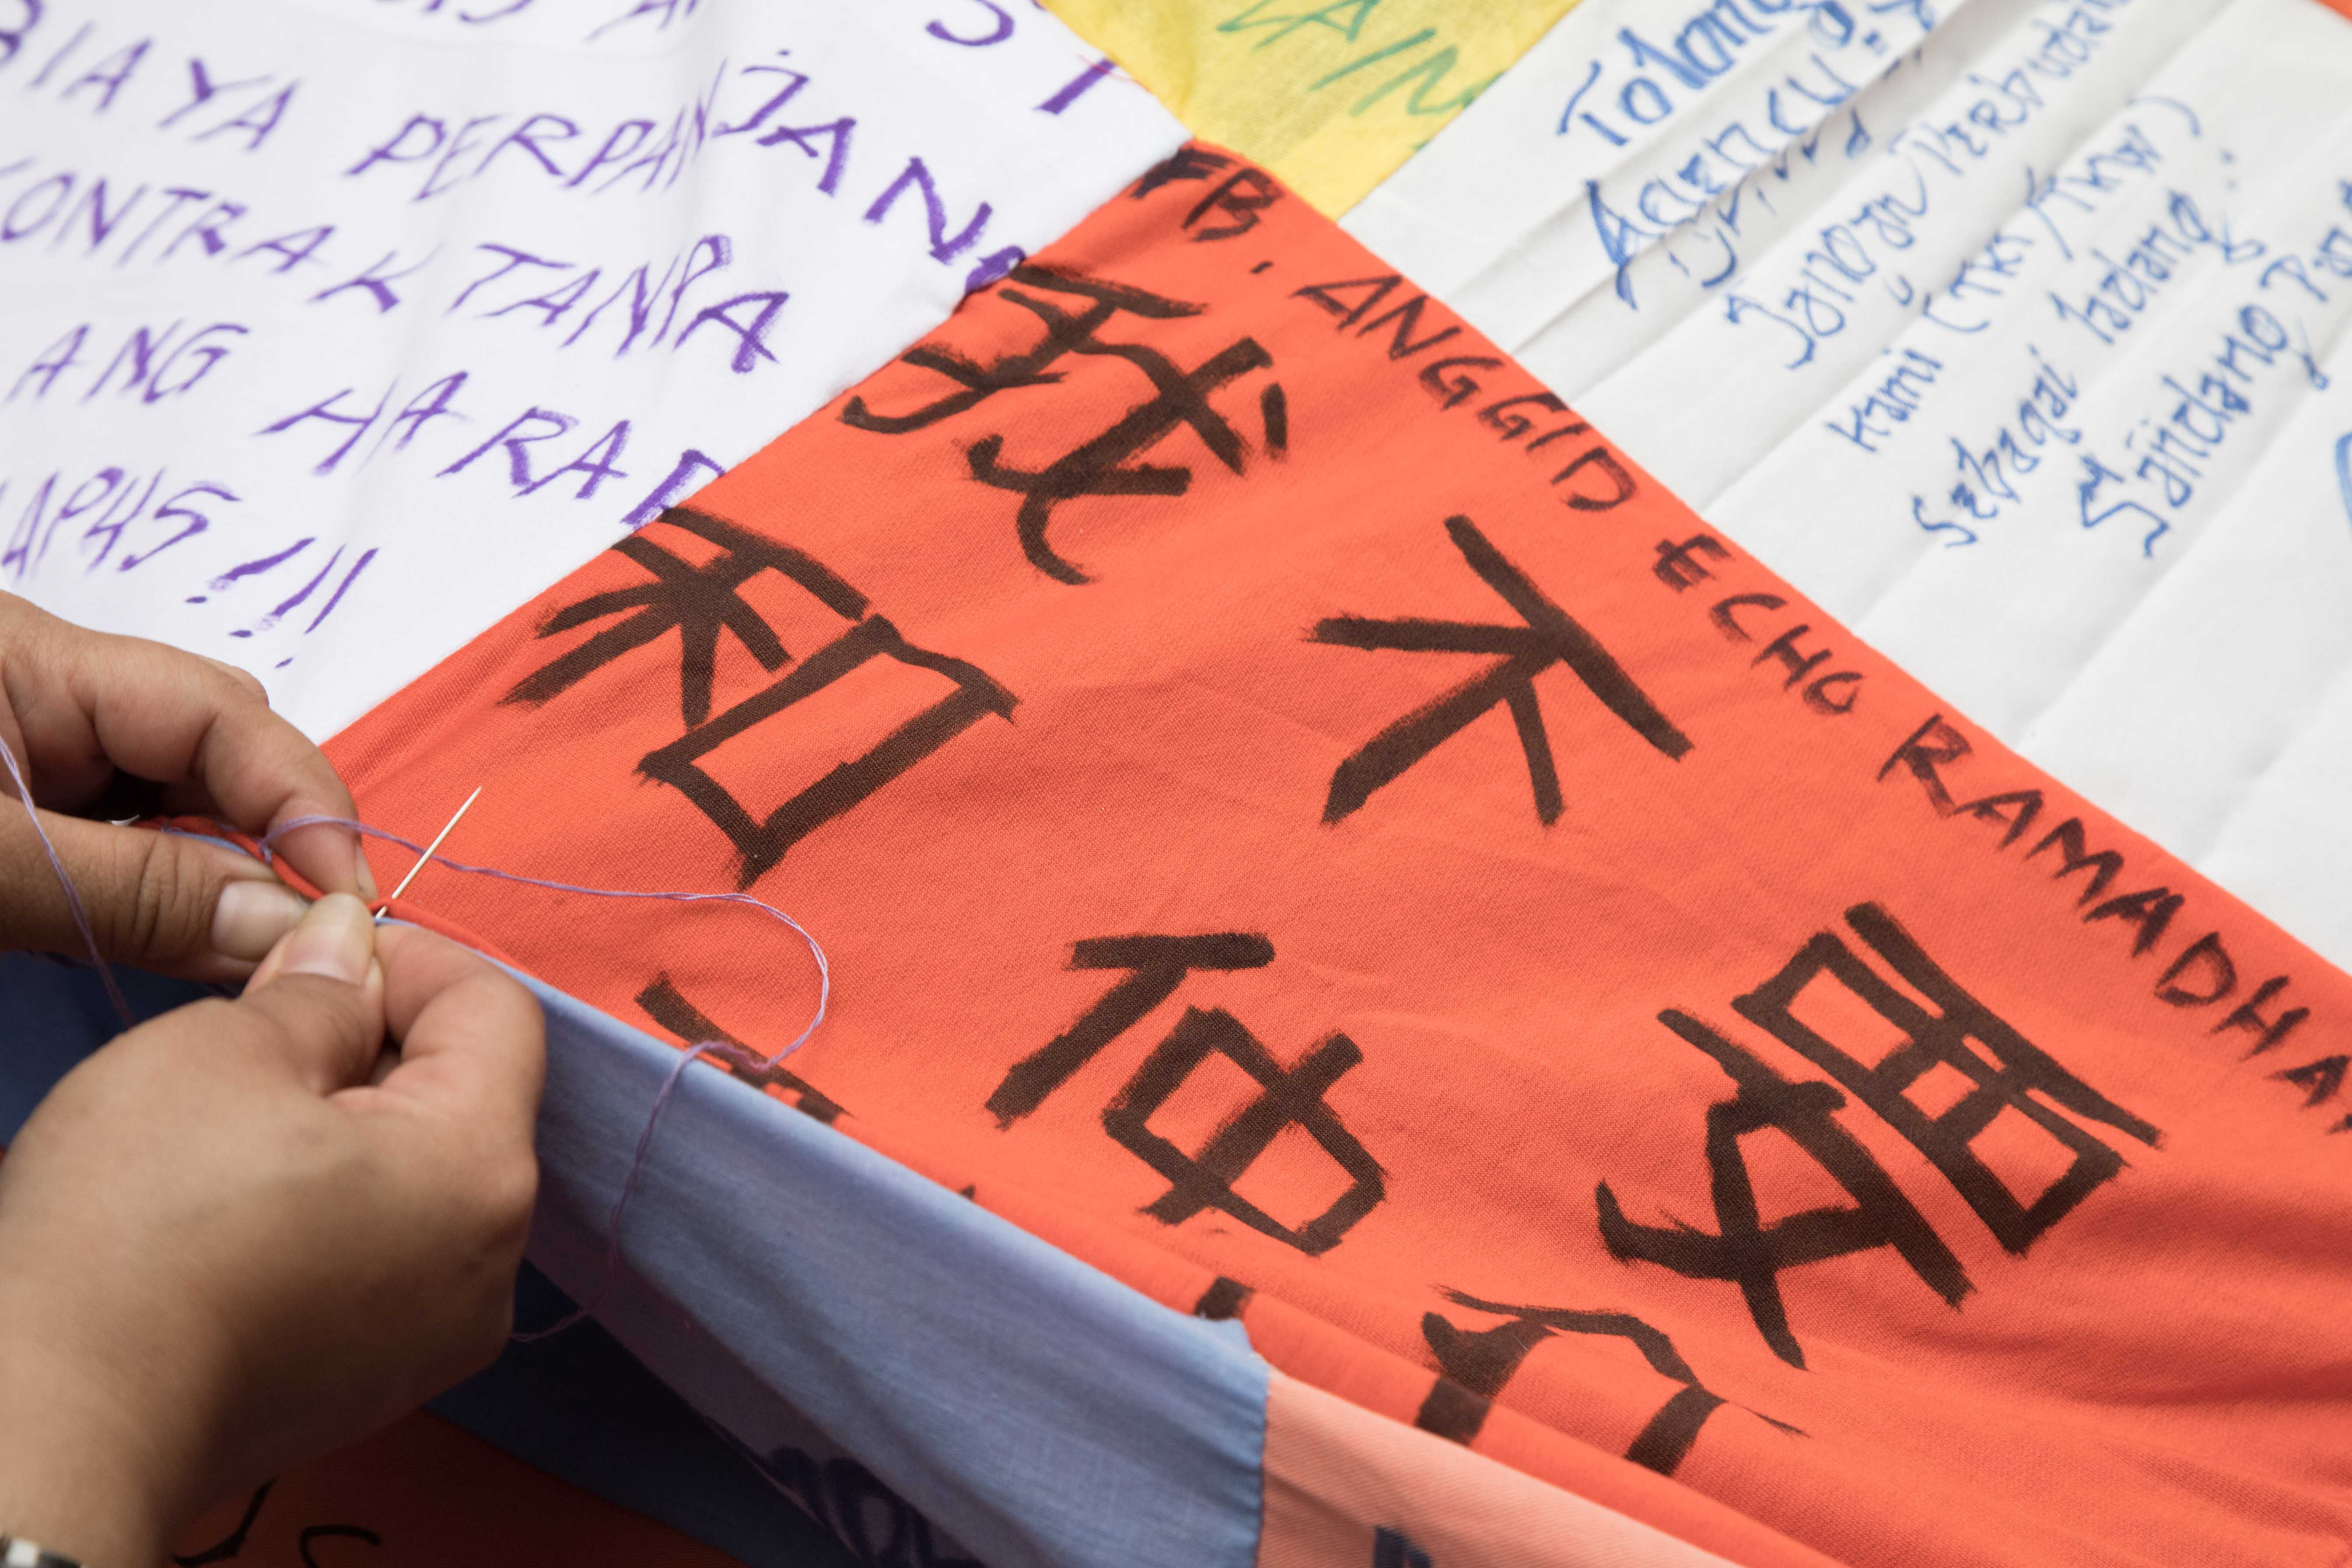 BIAYA PERPANJANG
KONTRAK TANPA
ANG HARAP
APUS !!!
LAIN
Tolong
Agency
Jangan Perbudak
Kami (TKI/TKW)
Sebagai ladang
Sandang
FB. ANGGID ECHO RAMADHA
我不要
和仲介